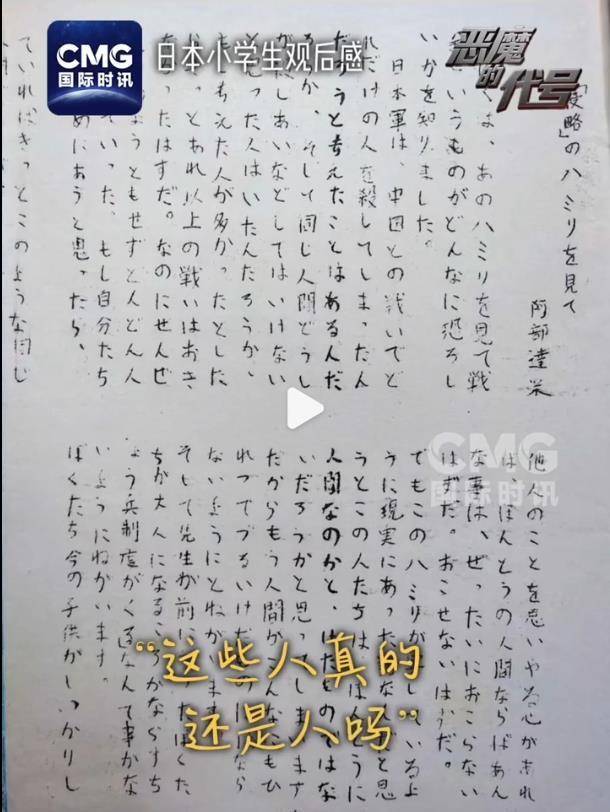 CMG
国际时讯
日本小学生观后感
恶魔的代号
略」のハミリを見て
阿部達栄
くは、あのハミリを見て戦
いうものがどんなに恐ろし
いかを知りました。
日本軍は、中国との戦いでど
れだけの人を殺してしまったん
だろうと考えたことはあるんだ
ろうか。そして同じ人間どうし
しあいなどしてはいけない
と思った人はいたんだろうか、
考えた人が多かったとした
っとあれ以上の戦いはおき
ったはずだ。なのにせんぜ
ようともせずどんどん人
ていった、もし自分たち
めにあうと思ったら、
ていればきっとこのような同じ
他人のことを思いやる心があれ
ば、ほんとうの人間ならばあん
な事は、ぜったいにおこらない
はずだ。おこせないはずだ。
でもこのハミリが しているよ
うに現実にあった なと思
うとこの人たちは、ほんとうに
人間なのかと、けだものではな
いだろうかと思ってしまいます
だからもう人間がこんなにもひ
れつでずるいけだものにはなら
ないようにとねがいます
そして先生が前に たぼくた
ちが大人になるころかならずち
ょう兵制度がくるなんて事がな
いようにねがいます。
ぼくたち今の子供がしっかりし
CMG
国际时讯
“这些人真的
还是人吗”